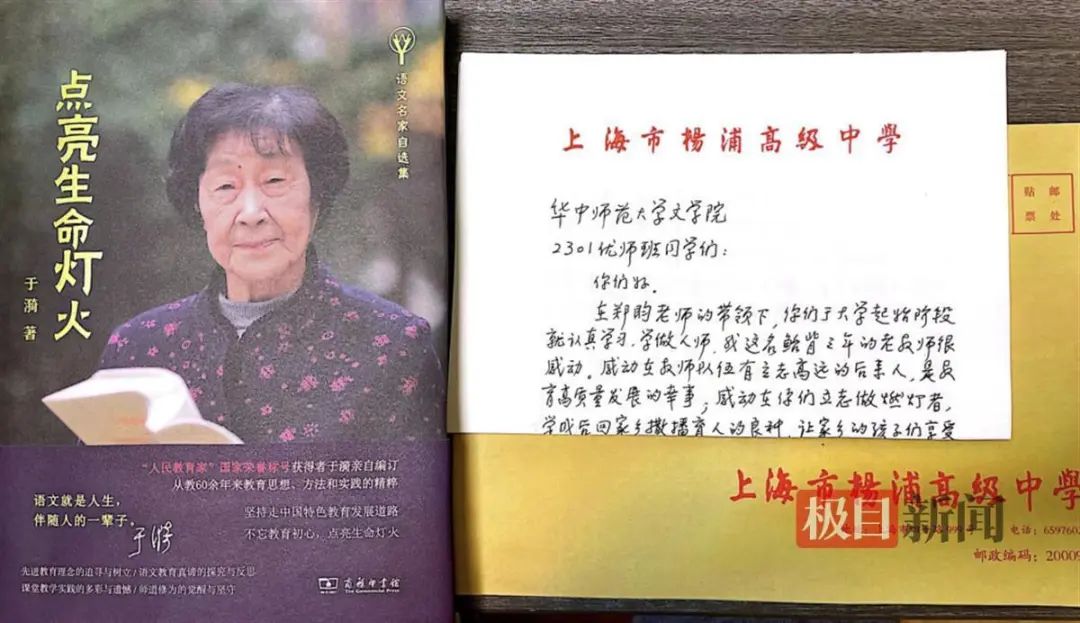 语文名家自选集
点亮生命灯火
于漪 著
“人民教育家”国家荣誉称号获得者于漪亲自编订
从教60余年来教育思想、方法和实践的精粹
坚持走中国特色教育发展道路
不忘教育初心，点亮生命灯火
语文就是人生，
伴随人的一辈子。
于漪
先进教育理念的追寻与树立/语文教育真谛的探究与反思
课堂教学实践的多彩与遗憾/师道修为的觉醒与坚守
商务印书馆
The Commercial Press
上海市楊浦高級中學
华中师范大学文学院
2301优师班同学们：
你们好。
在郑昀老师的带领下，你们于大学起始阶段
就认真学习，学做人师，我这名鲐背三年的老教师很
感动。感动在教师队伍有立志高远的后来人，是教
育高质量发展的幸事；感动在你们立志做燃灯者，
学成后回家乡撒播育人的良种，让家乡的孩子们享受
贴邮
票处
上海市楊浦高級中學
电话：659760
邮政编码：20009
极目新闻